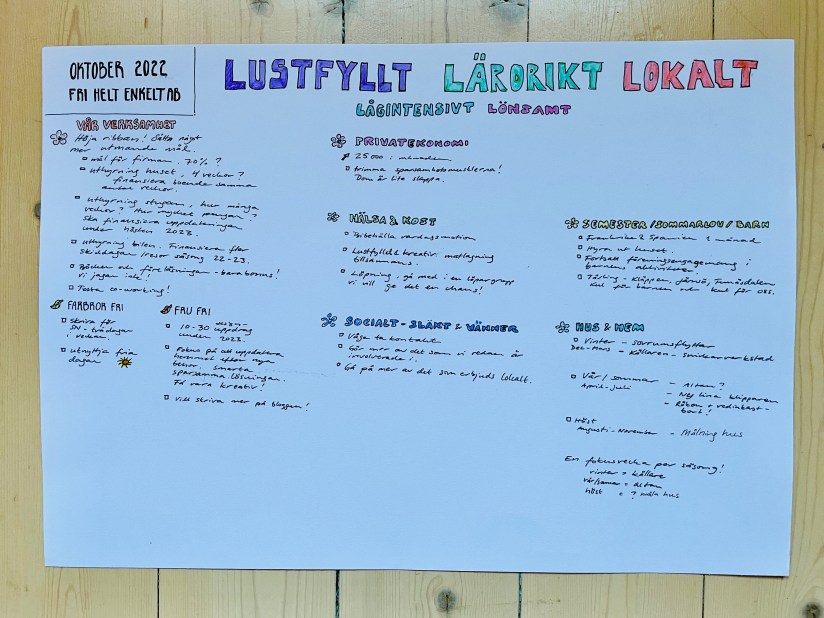 OKTOBER 2022
FRI HELT ENKELT AB
LUSTFYLLT LÄRORIKT LOKALT
LÅGINTENSIVT LÖNSAMT
VÅR VERKSAMHET
Höja ribban! Sätta något
mer utmande mål.
mål för firman. 70% ?
uthyrning huset, 4 veckor?
finansiera boende samma
antal veckor.
uthyrning stugan, hur många
veckor? Hur mycket pengar?
Ska finansiera uppdateringen
under hösten 2023.
Uthyrning bilen. Finansiera fler
skiddagar/resor säsong 22-23.
Böcker och föreläsningar - bara bonus!
vi jagar inte!
Testa co-working!
FARBROR FRI
skriva för
SN - tisdagar
i veckan.
utnyttja fria
dagar
FRU FRI
10-30 uppdrag
under 2023.
Fokus på att uppdatera
hemmet efter nya
behov. smarta
sparsamma lösningar.
Få vara kreativ!
Vill skriva mer på bloggen!
PRIVATEKONOMI
25 000 i månaden
trimma sparsamhetsmusklerna!
Dom är lite slappa.
HÄLSA & KOST
Bibehålla vardagsmotion
Lustfylld & kreativ matlagning
tillsammans.
Löpning, gå med i en löpargrupp
vi vill ge det en chans!
SOCIALT - SLÄKT & VÄNNER
Våga ta kontakt
Gör mer av det som vi redan är
involverade i.
Gå på mer av det som erbjuds lokalt.
SEMESTER/SOMMARLOV/BARN
Frankrike & Spanien 1 månad
Hyra ut huset.
Fortsatt föreningsengagemang i
barnens aktiviteter.
Tävling - Kläppen, Järvsö, Funäsdalen
Kul för barnen och kul för oss.
HUS & HEM
Vinter - sovrumsflyttar
Dec-Mars - Källaren - snickarverkstad
Vår/sommar - Altan?
April-juli - Nej lina klipparen
- Räkon + vedinkast-
bort!
Höst
Augusti-November - Målning hus
En fokusvecka per säsong!
vinter = källare
vår/sommar = altan
höst = ? måla hus